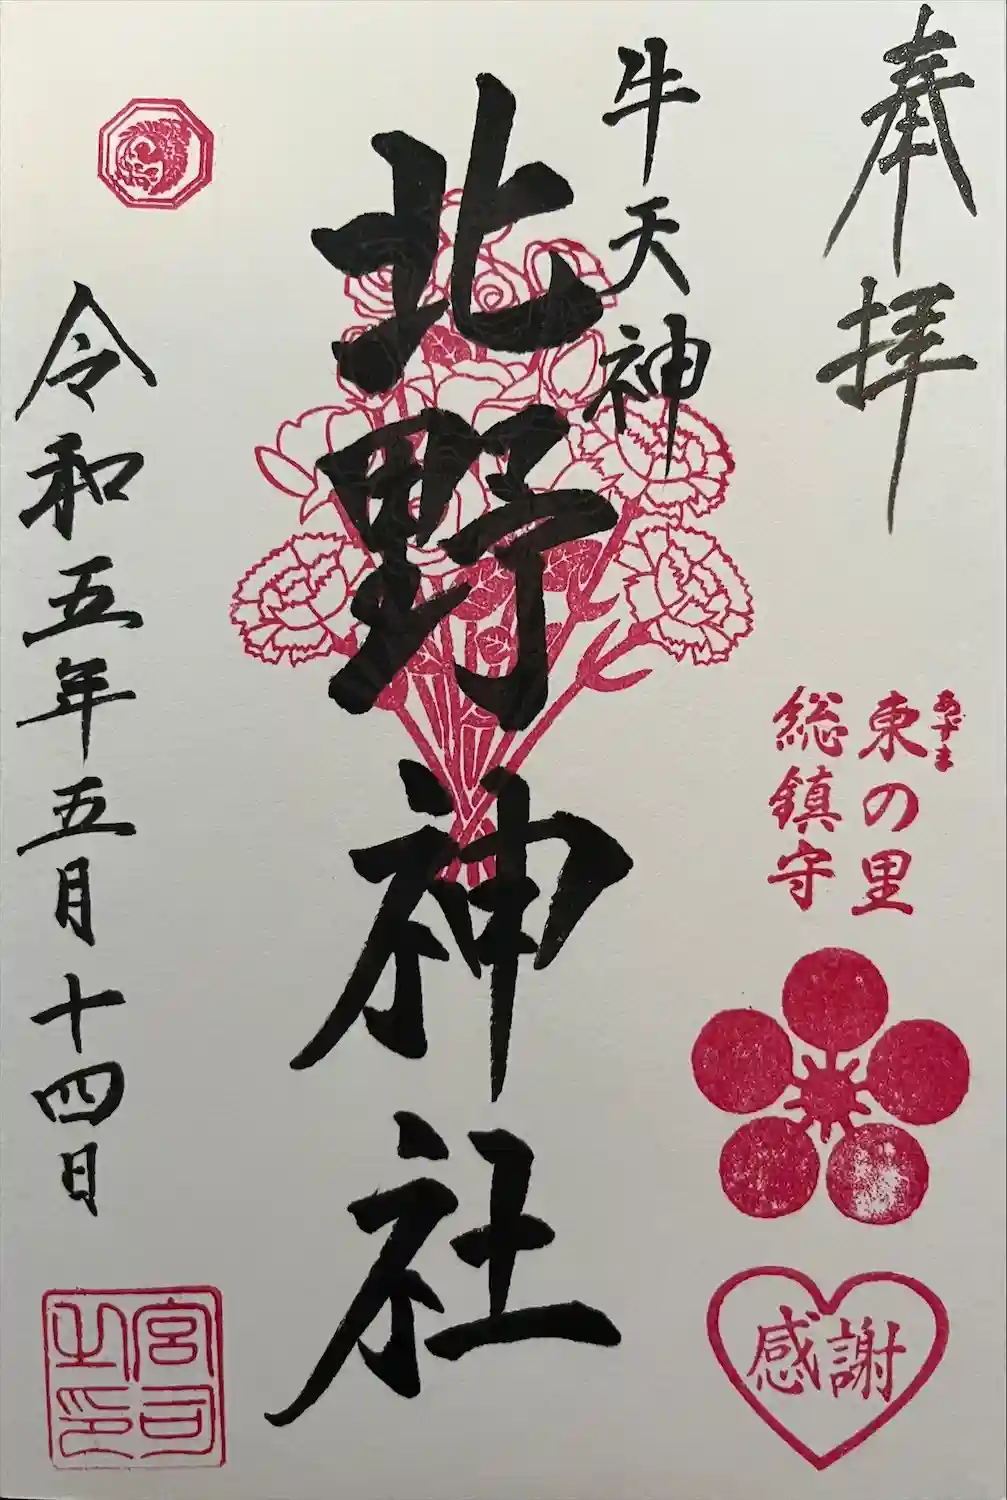 奉拝
あずま
東の里
総鎮守
感謝
牛天神
北野神社
令和五年五月十四日
宮司
之印